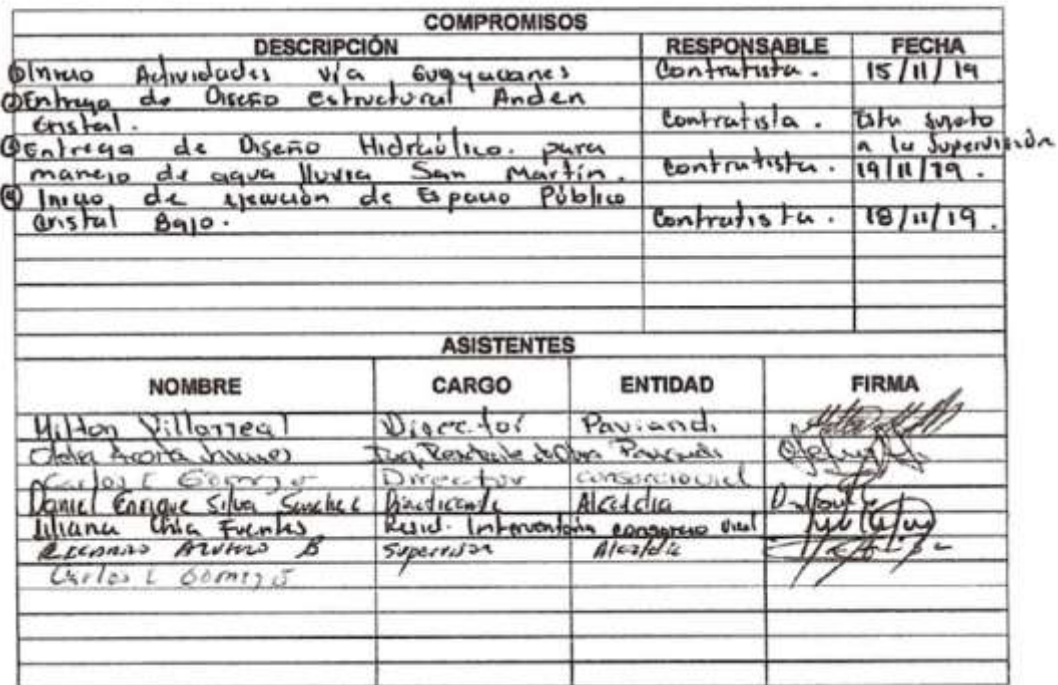 COMPROMISOS
DESCRIPCIÓN RESPONSABLE FECHA
① Inicio Actividades vía Guayacanes Contratista. 15/11/19
② Entrega de Diseño Estructural Anden
Cristal. Contratista. Esta sujeto
a la Supervisión
③ Entrega de Diseño Hidráulico. para
manejo de agua lluvia San Martín. Contratista. 19/11/19.
④ Inicio de ejecución de Espacio Público
Cristal Bajo. Contratista. 18/11/19.
ASISTENTES
NOMBRE CARGO ENTIDAD FIRMA
Milton Villarreal Director Paviandi
Acosta Residente de Obra
Carlos E Director consorcio vial
Daniel Enrique Silva Sanchez Practicante Alcaldia
Liliana Chia Fuentes Resid. Interventoria consorcio vial
B Supervisor Alcaldía
Carlos E